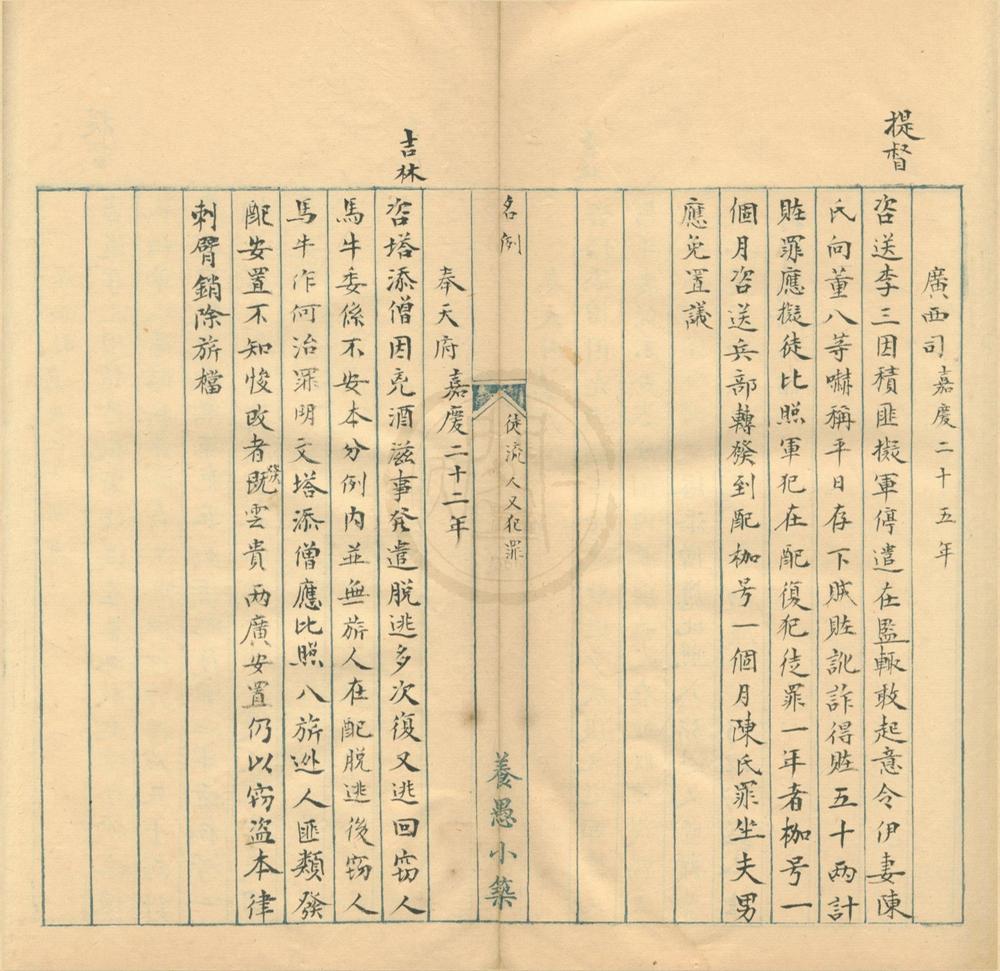 廣西司嘉慶二十五年
提督
咨送李三因積匪擬軍停遣在監輒敢起意令伊妻陳
氏向董八等嚇稱平日存下贓賍訛詐得賍五十兩計
賍罪應擬徒比照軍犯在配復犯徒罪一年者枷号一
個月咨送兵部轉發到配枷号一個月陳氏罪坐夫男
應免置議
名例
徒流人又犯罪
養愚小築
奉天府嘉慶二十二年
吉林
咨塔添僧因兇酒滋事発遣脱逃多次復又逃回窃人
馬牛委係不安本分例内並無旂人在配脱逃後窃人
馬牛作何治罪明文塔添僧應比照八旂逃人匪類發
配安置不知悛改者旣發雲貴兩廣安置仍以窃盗本律
刺臂銷除旂檔